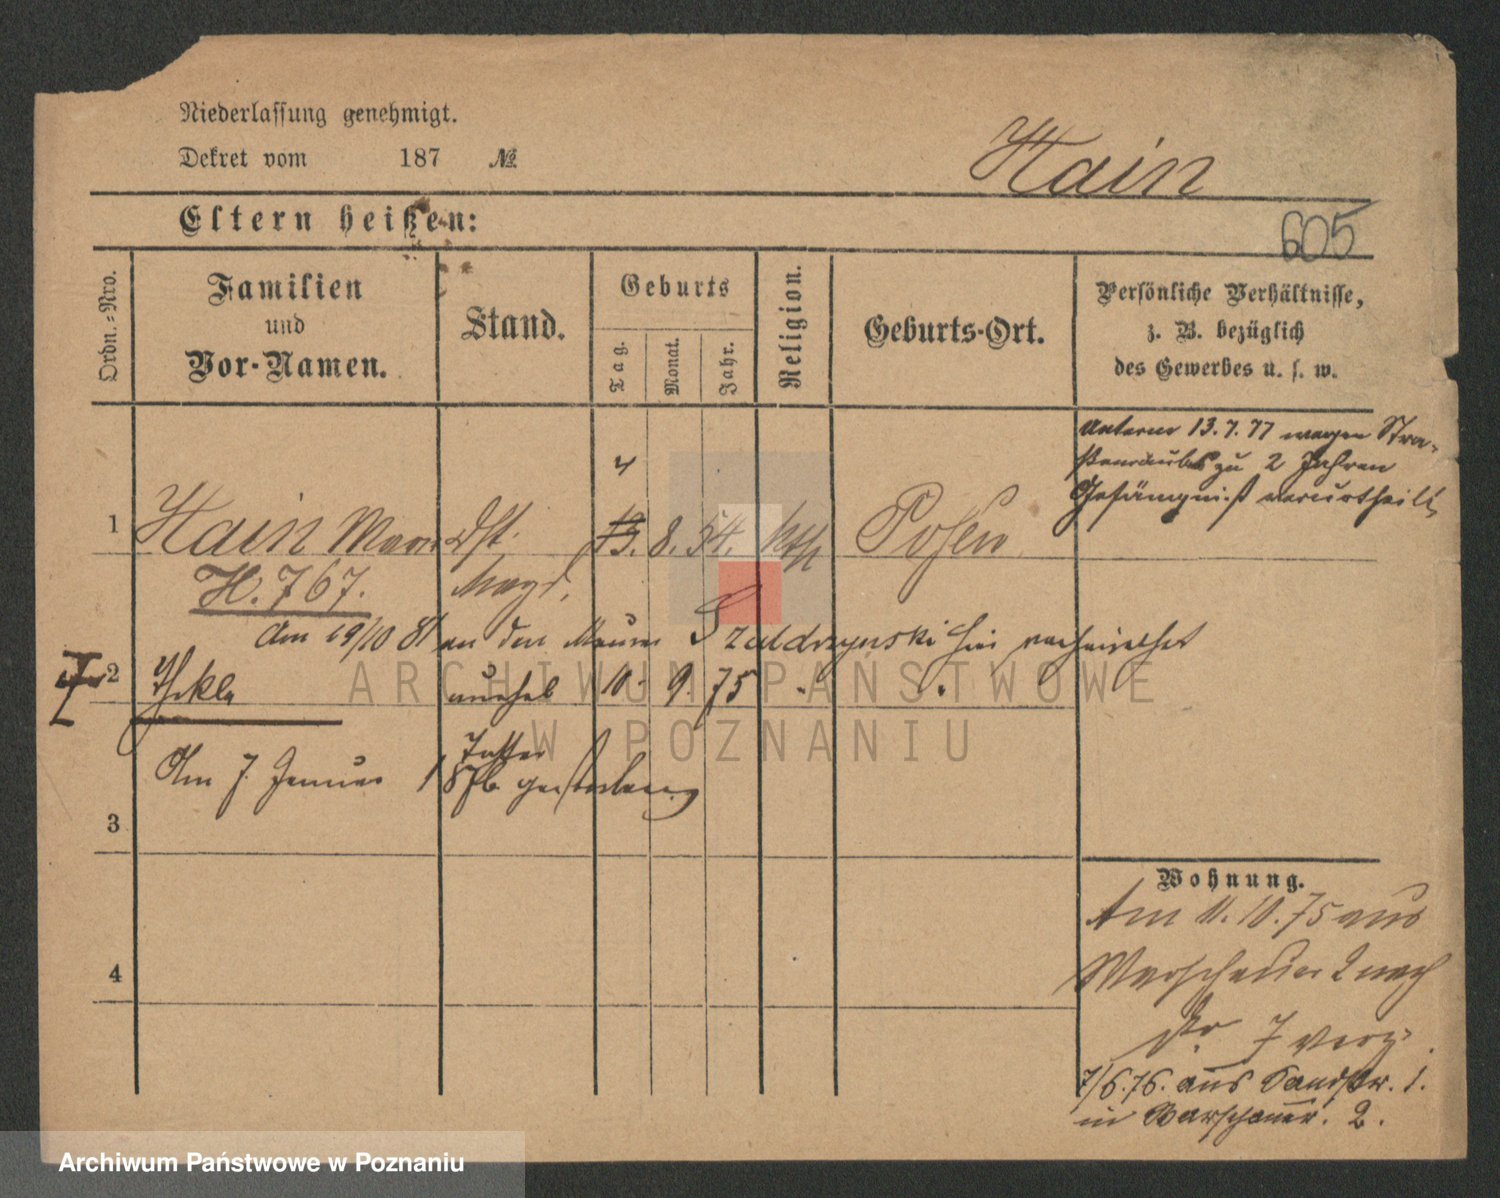 Niederlassung genehmigt.
Dekret vom 187 №
Hain
Eltern heißen:
605
Ordn.-Nro.
Familien
und
Vor-Namen.
Stand.
Geburts
Tag.
Monat.
Jahr.
Religion.
Geburts-Ort.
Persönliche Verhältnisse,
z. B. bezüglich
des Gewerbes u. s. w.
Unterm 13.7.77 wegen Stra-
ßenraubes zu 2 Jahren
Gefängniß verurtheilt
4
1 Hain 13. 8. 54. kth Posen
H. 767.
Magd.
Am 19/10 81 an den Maurer hier verheirathet
2 Thekla unehel 10. 9. 75
Tochter
Am 7. Januar 1876 gestorben
3
4
Wohnung.
Am 11.10.75 aus
Warschauer 2 nach
7 verz.
7/6.76. aus Sandstr. 1.
in Warschauer. 2.
ARCHIWUM PAŃSTWOWE
W POZNANIU
Archiwum Państwowe w Poznaniu